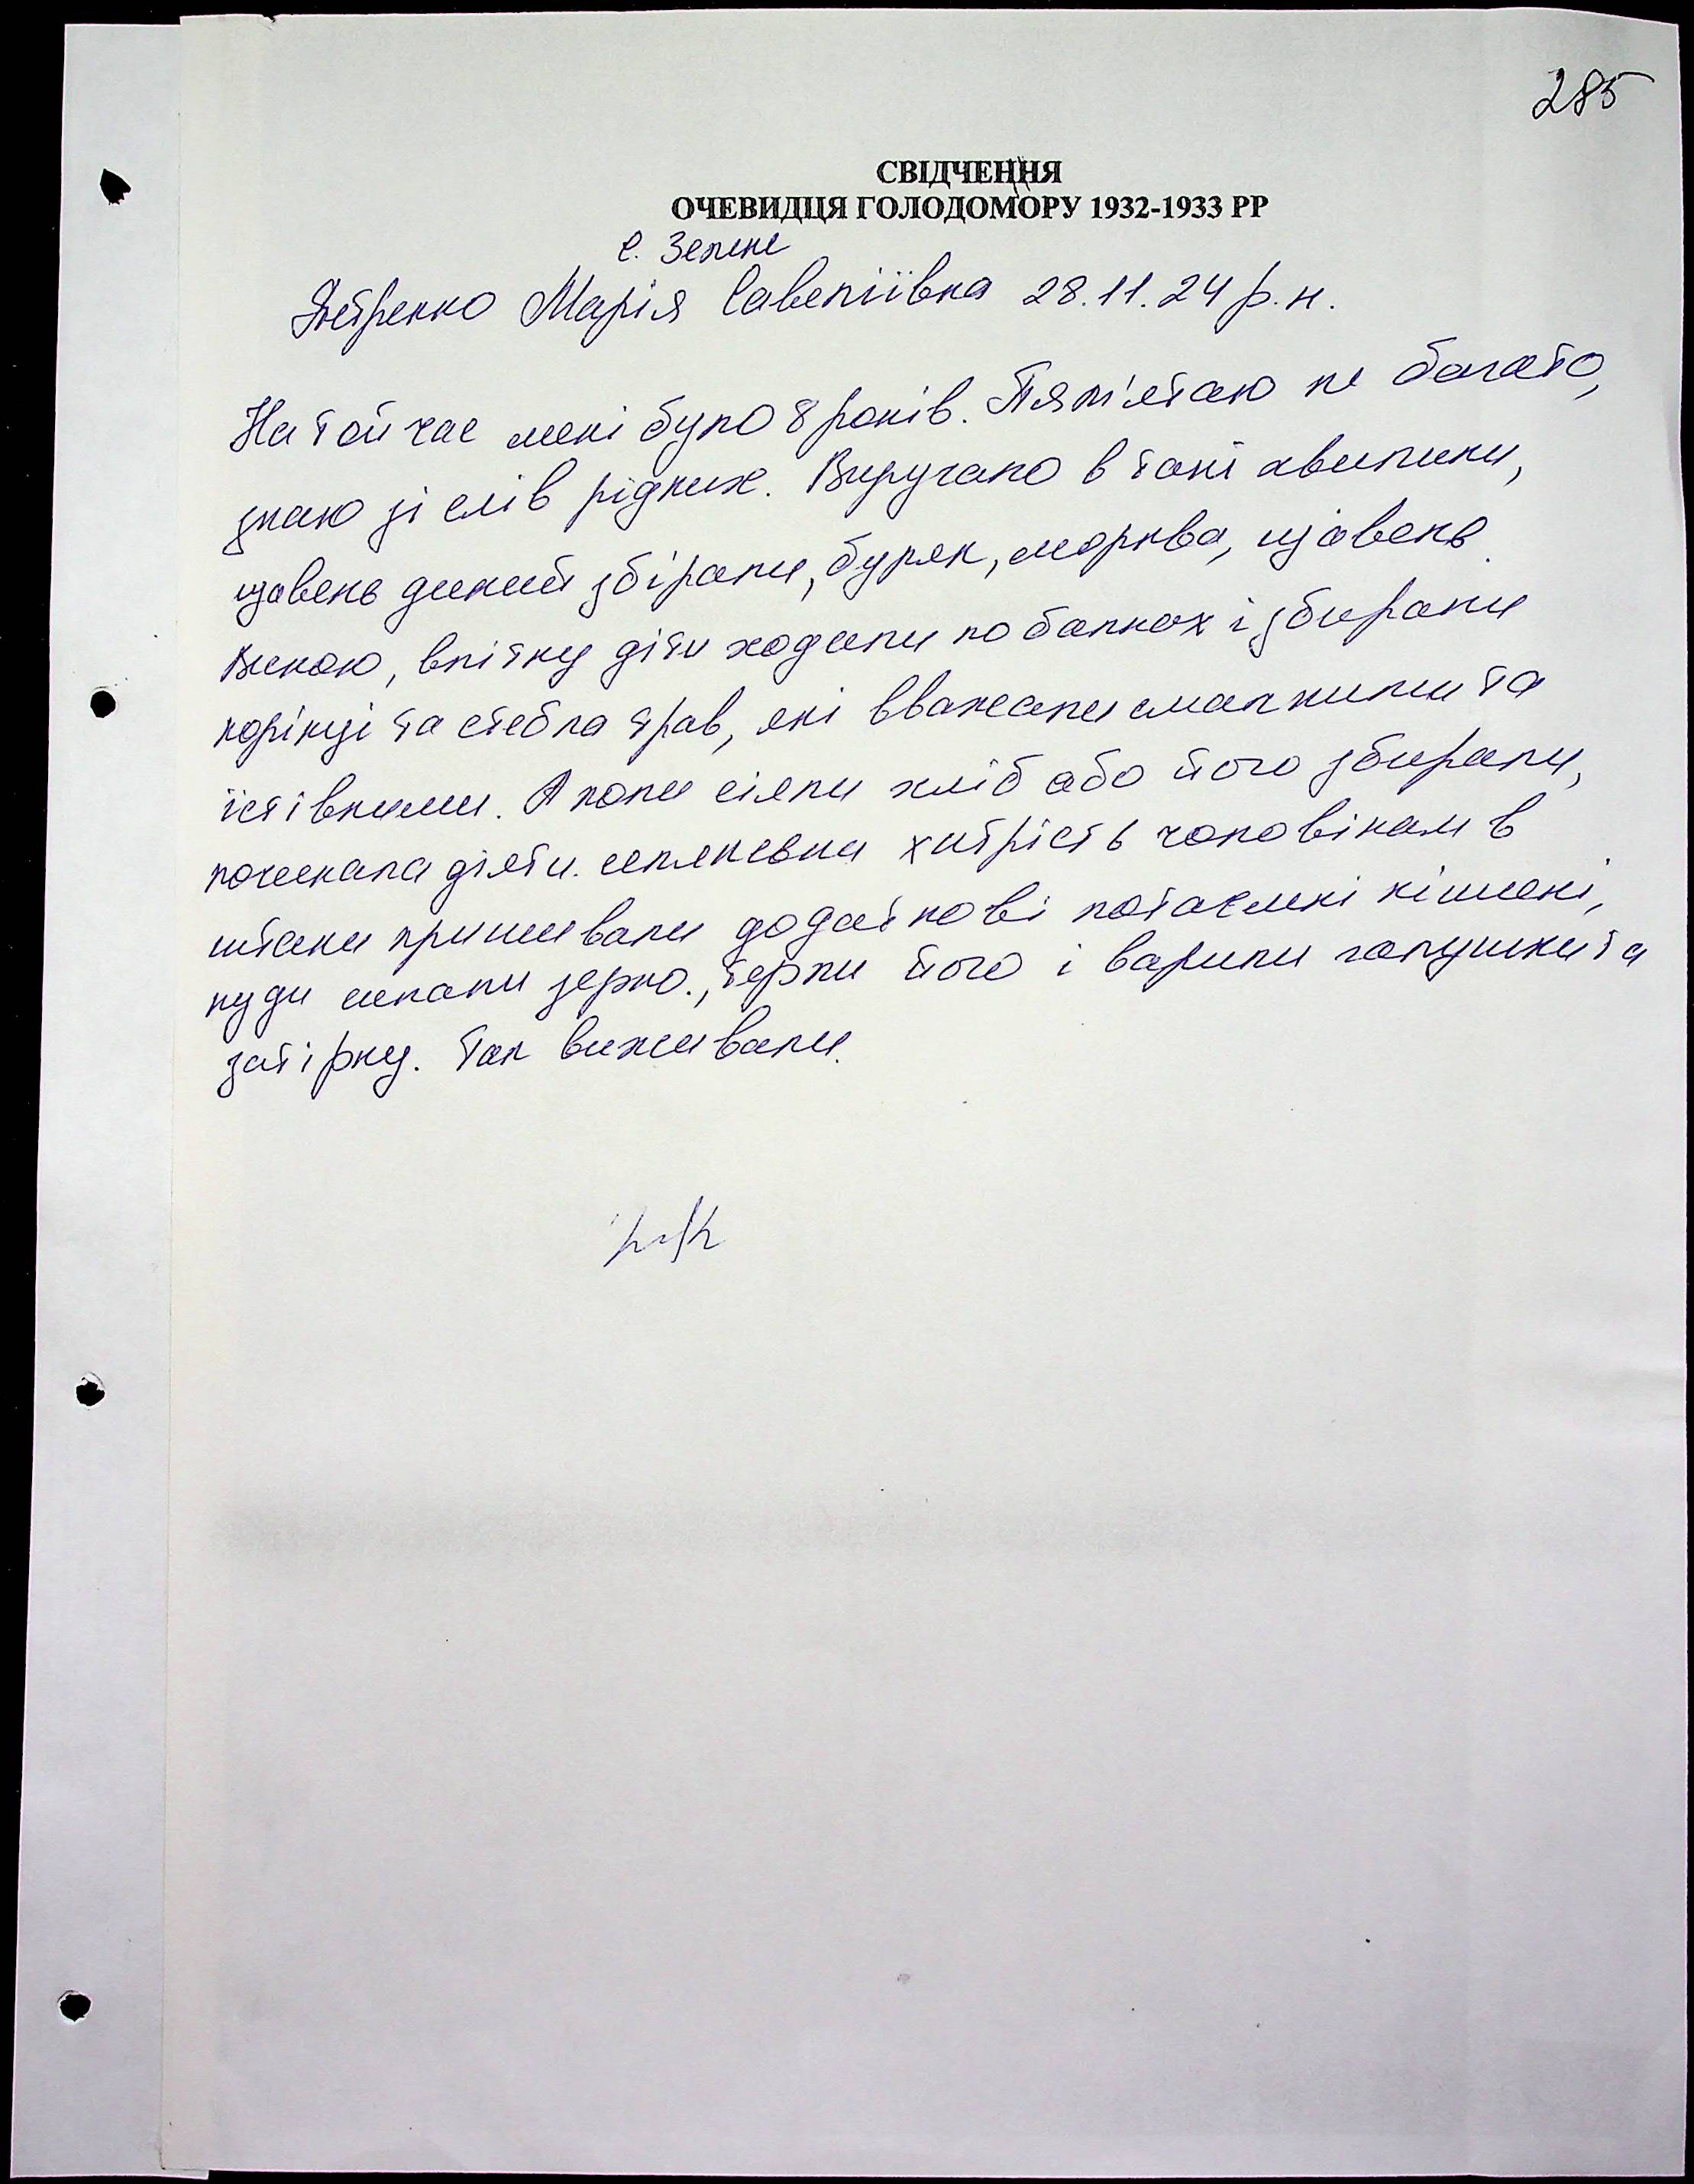 285
СВІДЧЕННЯ
ОЧЕВИДЦЯ ГОЛОДОМОРУ 1932-1933 РР
с. Зелене
Петренко Марія Савеліївна 28.11.24 р.н.
На той час мені було 8 років. Пям'ятаю не багато,
знаю зі слів рідних. Виручало в такі хвилини,
щавень дикий збірали, буряк, морква, щавень
Висною, влітку діти ходили по балках і збирали
корінці та стебла трав, які вважали смачними та
їстівними. А коли сіяли хліб або його збирали,
починала діяти. селянська хитрість чоловікам в
штани пришивали додаткові потаємні кішені,
куди сипали зерно., терли його і варили галушки та
затірку. Так виживали.